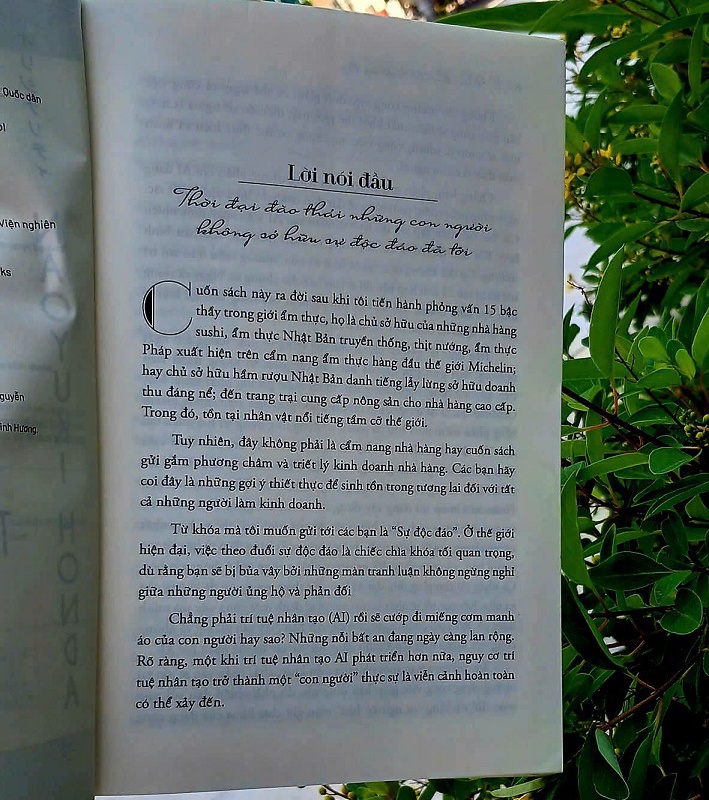 Quốc dân
Viện nghiên
ks
guyễn
Lời nói đầu
Thời đại đào thải những con người
không sở hữu sự độc đáo đã tới
Cuốn sách này ra đời sau khi tôi tiến hành phỏng vấn 15 bậc
thầy trong giới ẩm thực, họ là chủ sở hữu của những nhà hàng
sushi, ẩm thực Nhật Bản truyền thống, thịt nướng, ẩm thực
Pháp xuất hiện trên cẩm nang ẩm thực hàng đầu thế giới Michelin;
hay chủ sở hữu hầm rượu Nhật Bản danh tiếng lẫy lừng sở hữu doanh
thu đáng nể; đến trang trại cung cấp nông sản cho nhà hàng cao cấp.
Trong đó, tồn tại nhân vật nổi tiếng tầm cỡ thế giới.
Tuy nhiên, đây không phải là cẩm nang nhà hàng hay cuốn sách
gửi gắm phương châm và triết lý kinh doanh nhà hàng. Các bạn hãy
coi đây là những gợi ý thiết thực để sinh tồn trong tương lai đối với tất
cả những người làm kinh doanh.
Từ khóa mà tôi muốn gửi tới các bạn là “Sự độc đáo”. Ở thế giới
hiện đại, việc theo đuổi sự độc đáo là chiếc chìa khóa tối quan trọng,
dù rằng bạn sẽ bị bủa vây bởi những màn tranh luận không ngừng nghỉ
giữa những người ủng hộ và phản đối
Chẳng phải trí tuệ nhân tạo (AI) rồi sẽ cướp đi miếng cơm manh
áo của con người hay sao? Những nỗi bất an đang ngày càng lan rộng.
Rõ ràng, một khi trí tuệ nhân tạo AI phát triển hơn nữa, nguy cơ trí
tuệ nhân tạo trở thành một “con người” thực sự là viễn cảnh hoàn toàn
có thể xảy đến.